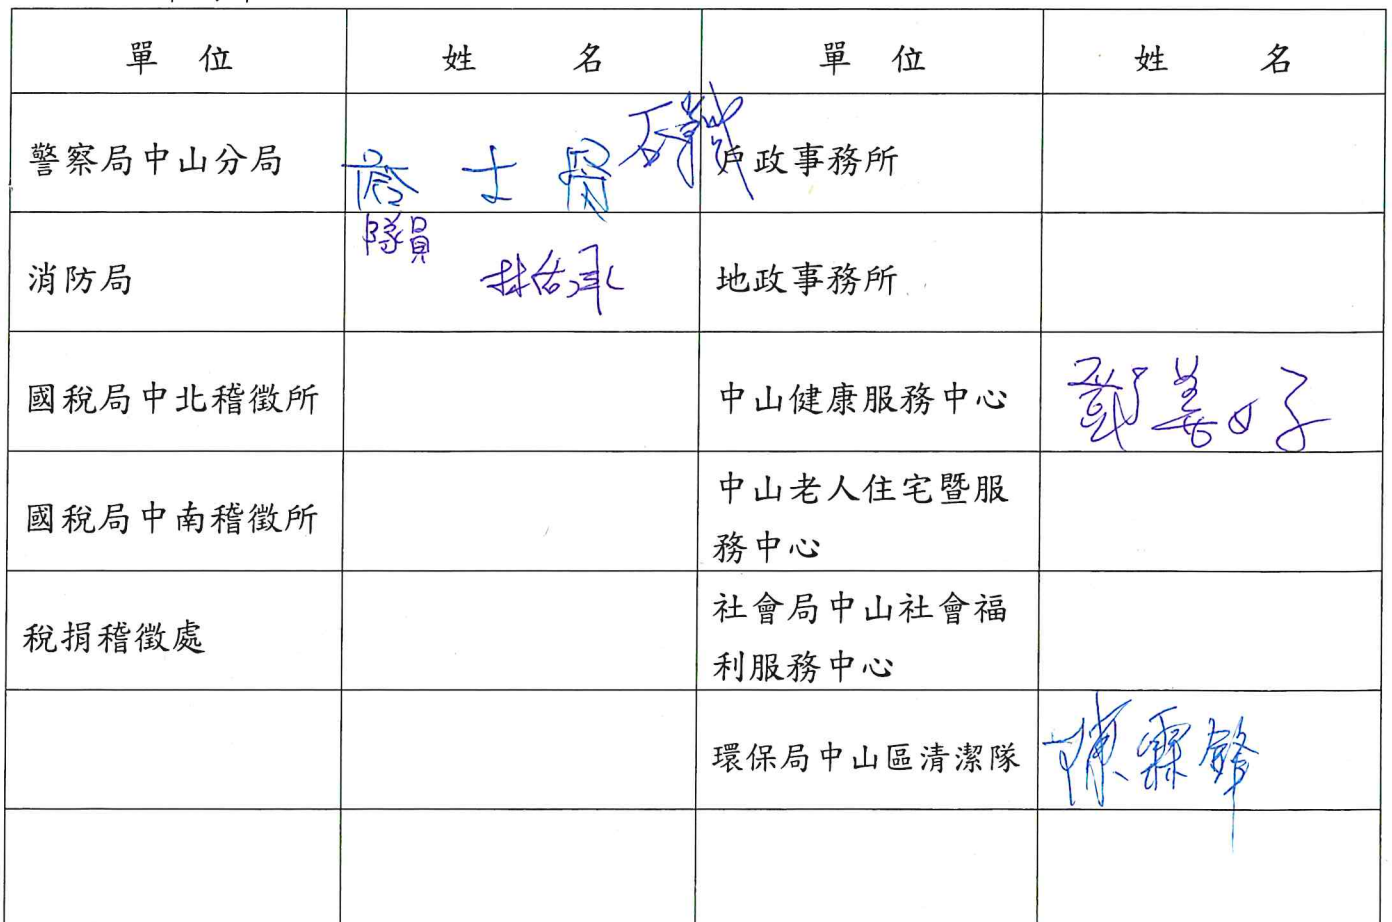 單位 姓名 單位 姓名
警察局中山分局 戶政事務所
隊員
消防局 林佑承 地政事務所
國稅局中北稽徵所 中山健康服務中心 鄭姜好
國稅局中南稽徵所 中山老人住宅暨服
務中心
稅捐稽徵處 社會局中山社會福
利服務中心
環保局中山區清潔隊 陳霖鋒